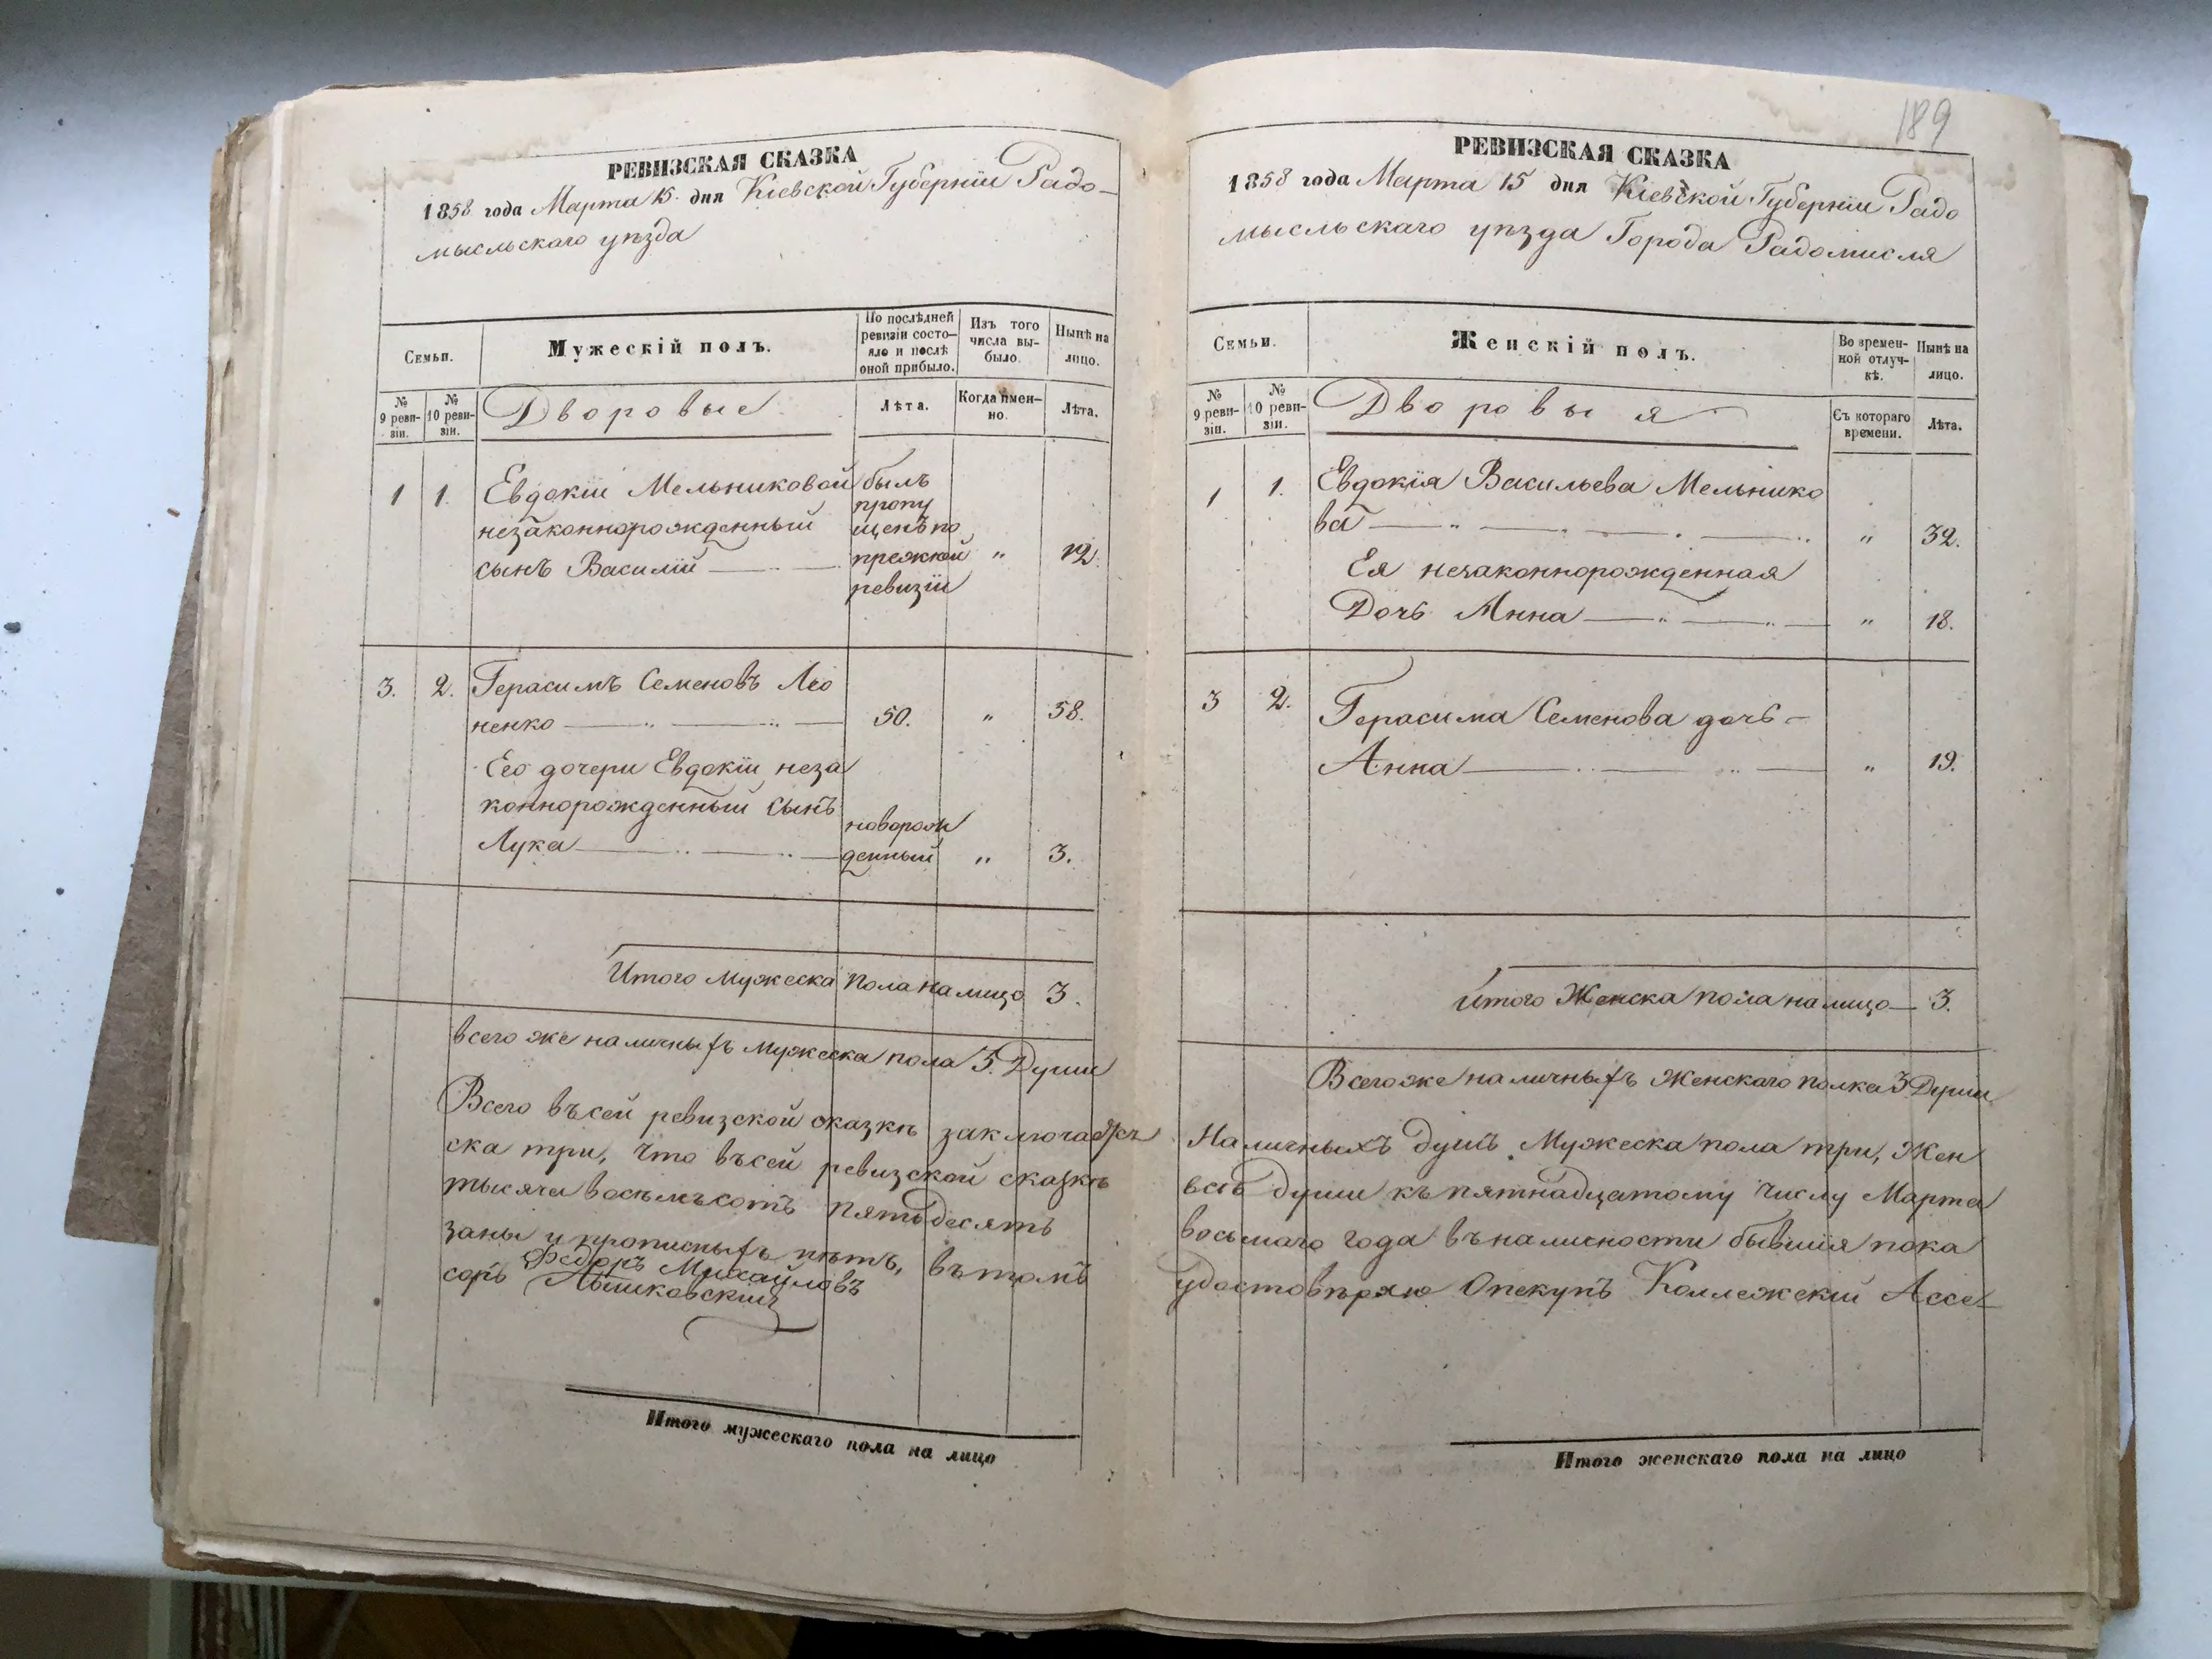 189
РЕВИЗСКАЯ СКАЗКА
1858 года Марта 15. дня Кіевской Губерніи Радо-
мысльскаго уѣзда
Семьи.
Мужескій полъ.
По послѣдней
ревизіи состо-
яло и послѣ
оной прибыло.
Изъ того
числа вы-
было.
Нынѣ на
лицо.
№
9 реви-
зіи.
№
10 реви-
зіи.
Дворовые
Лѣта.
Когда имен-
но.
Лѣта.
1 1. Евдокіи Мельниковой
незаконнорожденный
сынъ Василій — " — " 12.
былъ
пропу
щенъ по
прежней
ревизіи
3. 2. Герасимъ Семеновъ Лео
ненко — " — " — 50. " 58.
Его дочери Евдокіи неза
коннорожденный сынъ
Лука — " — " — новорож
денный " 3.
Итого Мужеска пола налицо 3.
всего же наличныхъ мужеска пола 3. Души
Всего въ сей ревизской сказкѣ заключается
ска три, что въ сей ревизской сказкѣ
тысяча восемьсотъ пятьдесятъ
заны и прописныхъ нѣтъ, въ томъ
соръ Федоръ Михайловъ
Лышковскій
Итого мужескаго пола на лицо
РЕВИЗСКАЯ СКАЗКА
1858 года Марта 15 дня Кіевской Губерніи Радо
мысльскаго уѣзда Города Радомисля
Семьи.
Женскій полъ.
Во времен-
ной отлуч-
кѣ.
Нынѣ на
лицо.
№
9 реви-
зіи.
№
10 реви-
зіи.
Дворовыя
Съ котораго
времени.
Лѣта.
1 1. Евдокія Васильева Мельнико
ва — " — " — " 32.
Ея незаконнорожденная
Дочь Анна — " — " — " 18.
3 2. Герасима Семенова дочь -
Анна — " — " — " 19.
Итого Женска пола налицо — 3.
Всего же наличныхъ Женскаго полка 3 Души
Наличныхъ душъ Мужеска пола три, Жен
всѣ души къ пятнадцатому числу Марта
восьмаго года въ наличности бывшія пока
удостовѣряю Опекунъ Коллежскій Ассе-
Итого женскаго пола на лицо